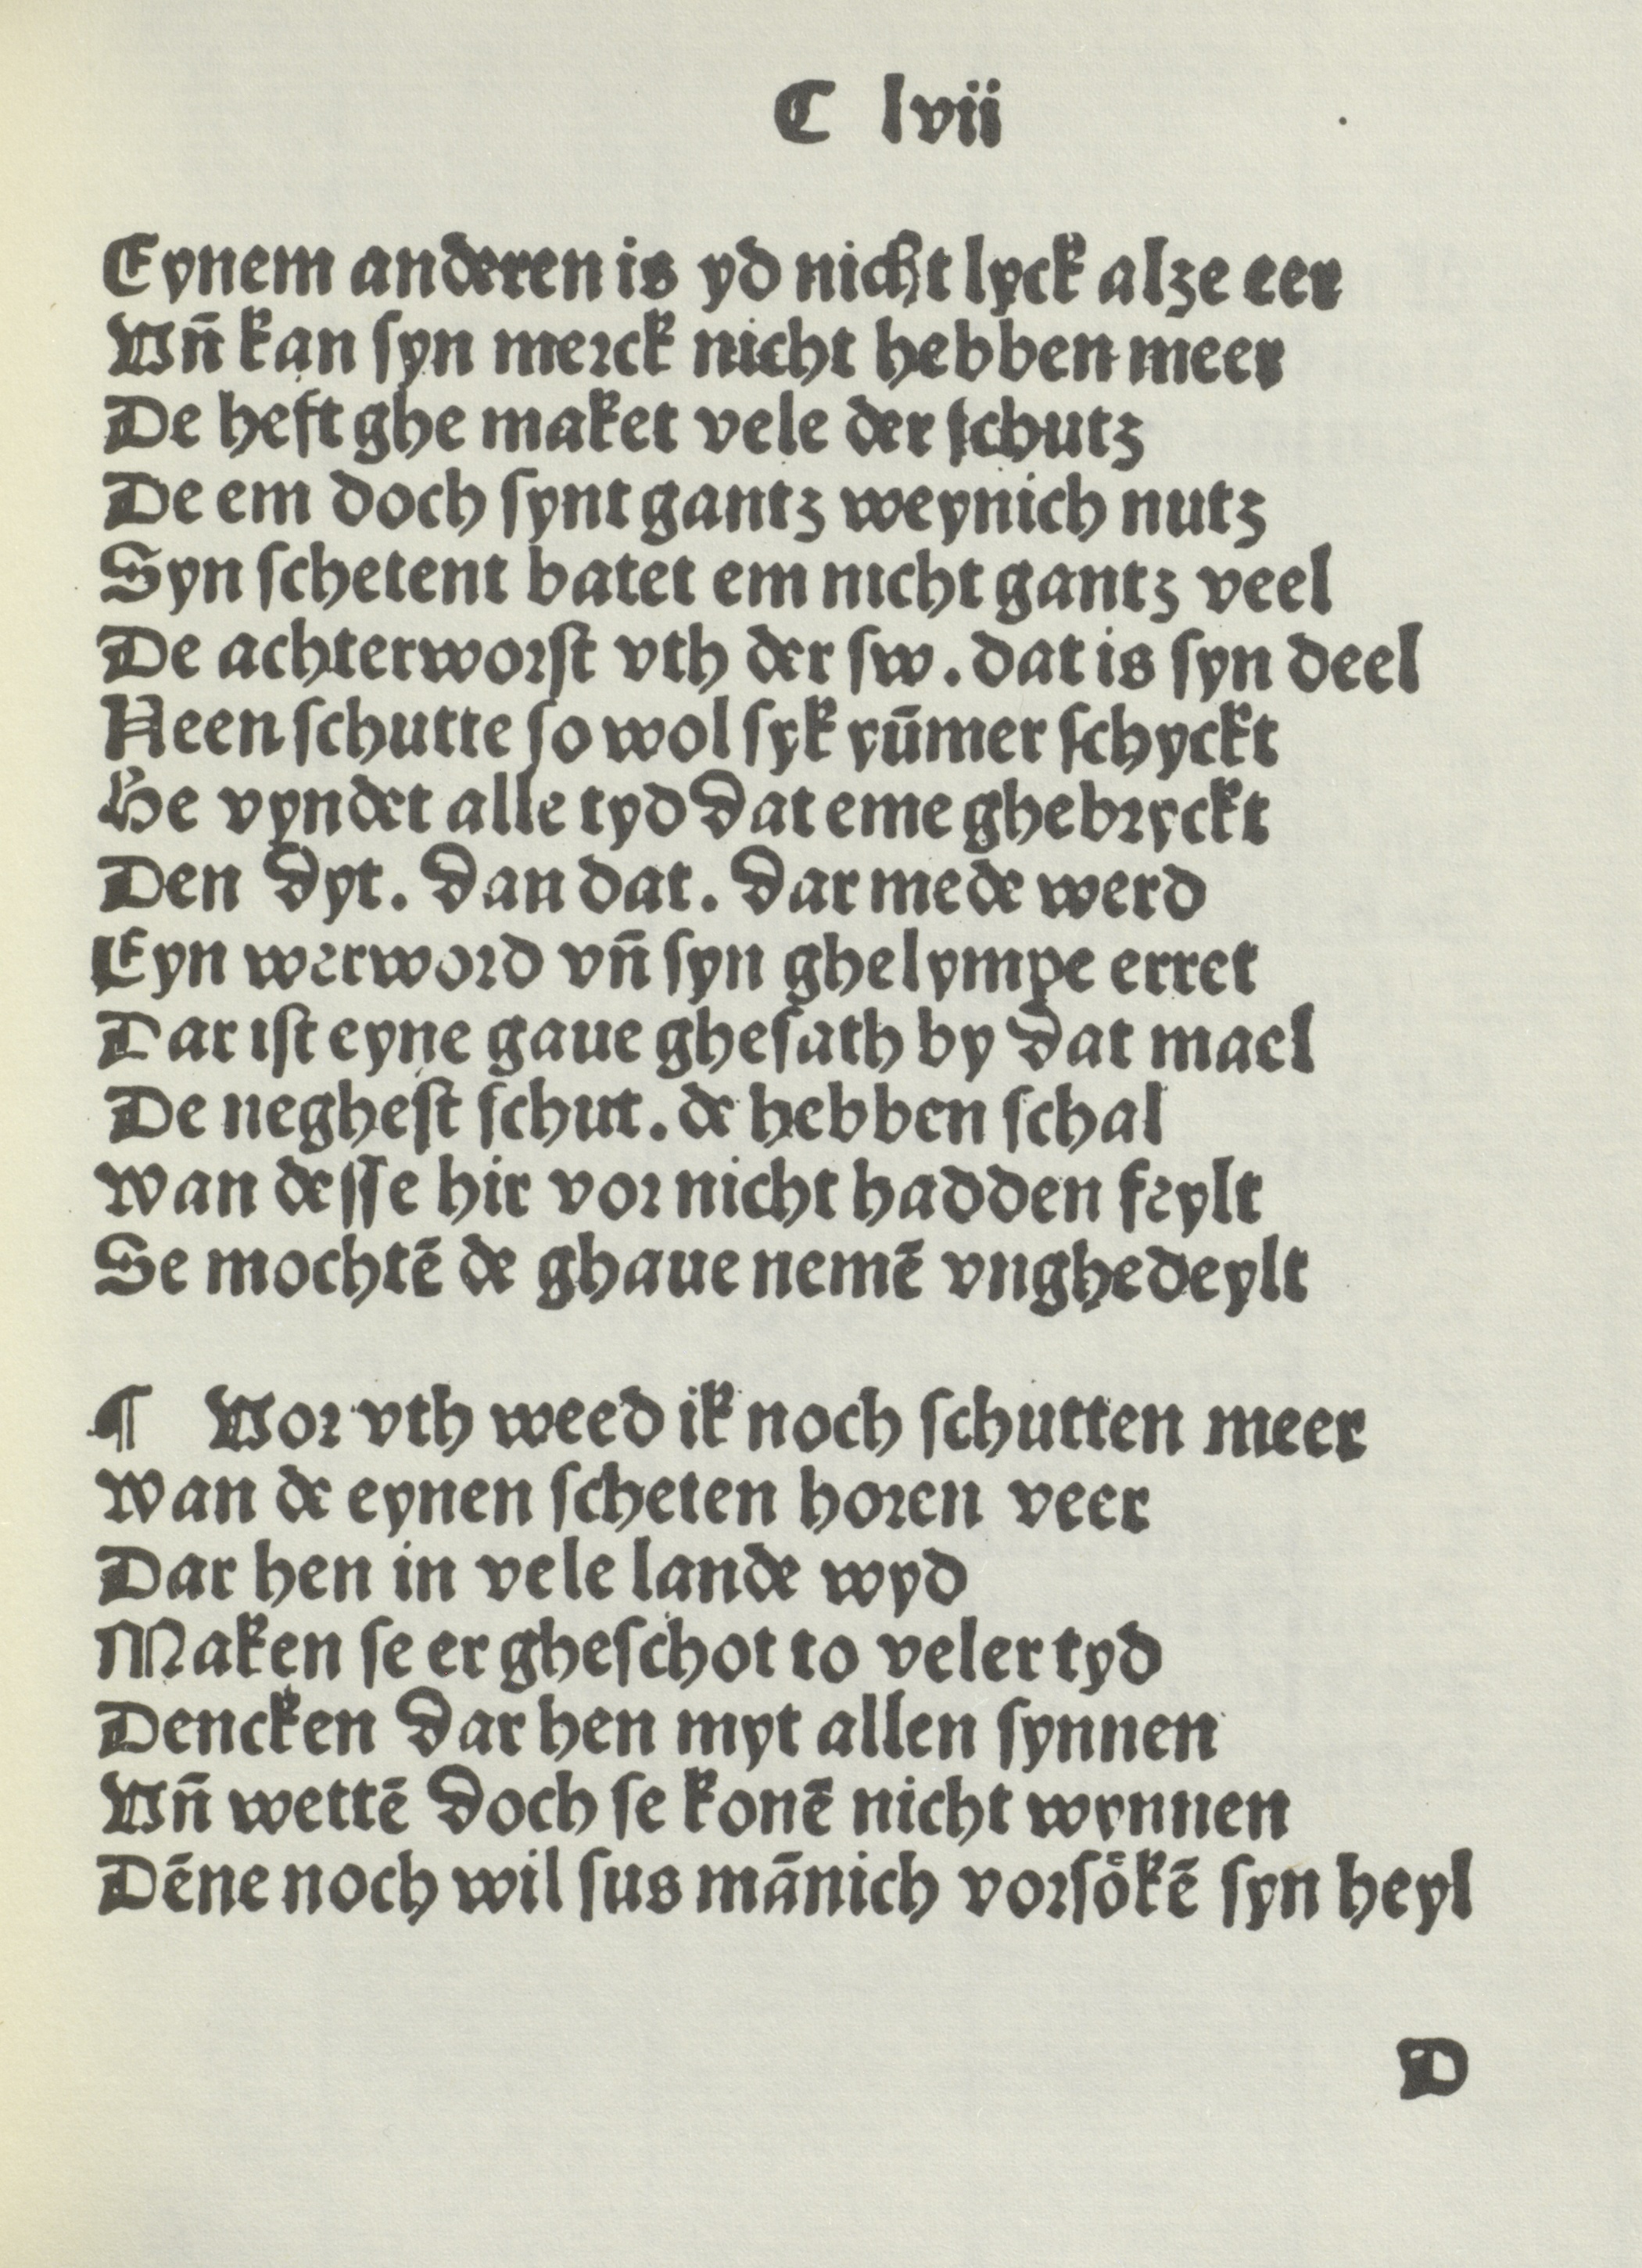 C lvii
Eynem anderen is yd nicht lyck alze eer
Vn̄ kan ſyn merck nicht hebben meer
De heft ghe maket vele der ſchutz
De em doch ſynt gantz weynich nutz
Syn ſchetent batet em nicht gantz veel
De achterworſt vth der ſw. dat is ſyn deel
Neen ſchutte ſo wol ſyk yūmer ſchyckt
He vyndet alle tyd dat eme ghebryckt
Den dyt. dan dat. dar mede werd
Eyn werword vn̄ ſyn ghelympe erret
Dar iſt eyne gaue gheſath by dat mael
De negheſt ſchut. de hebben ſchal
Wan deſſe hir vor nicht hadden feylt
Se mochtē de ghaue nemē vnghedeylt
¶ Vor vth weed ik noch ſchutten meer
Wan de eynen ſcheten horen veer
Dar hen in vele lande wyd
Maken ſe er gheſchot to veler tyd
Dencken dar hen myt allen ſynnen
Vn̄ wettē doch ſe konē nicht wynnen
Dēne noch wil ſus mānich vorſoͤkē ſyn heyl
D